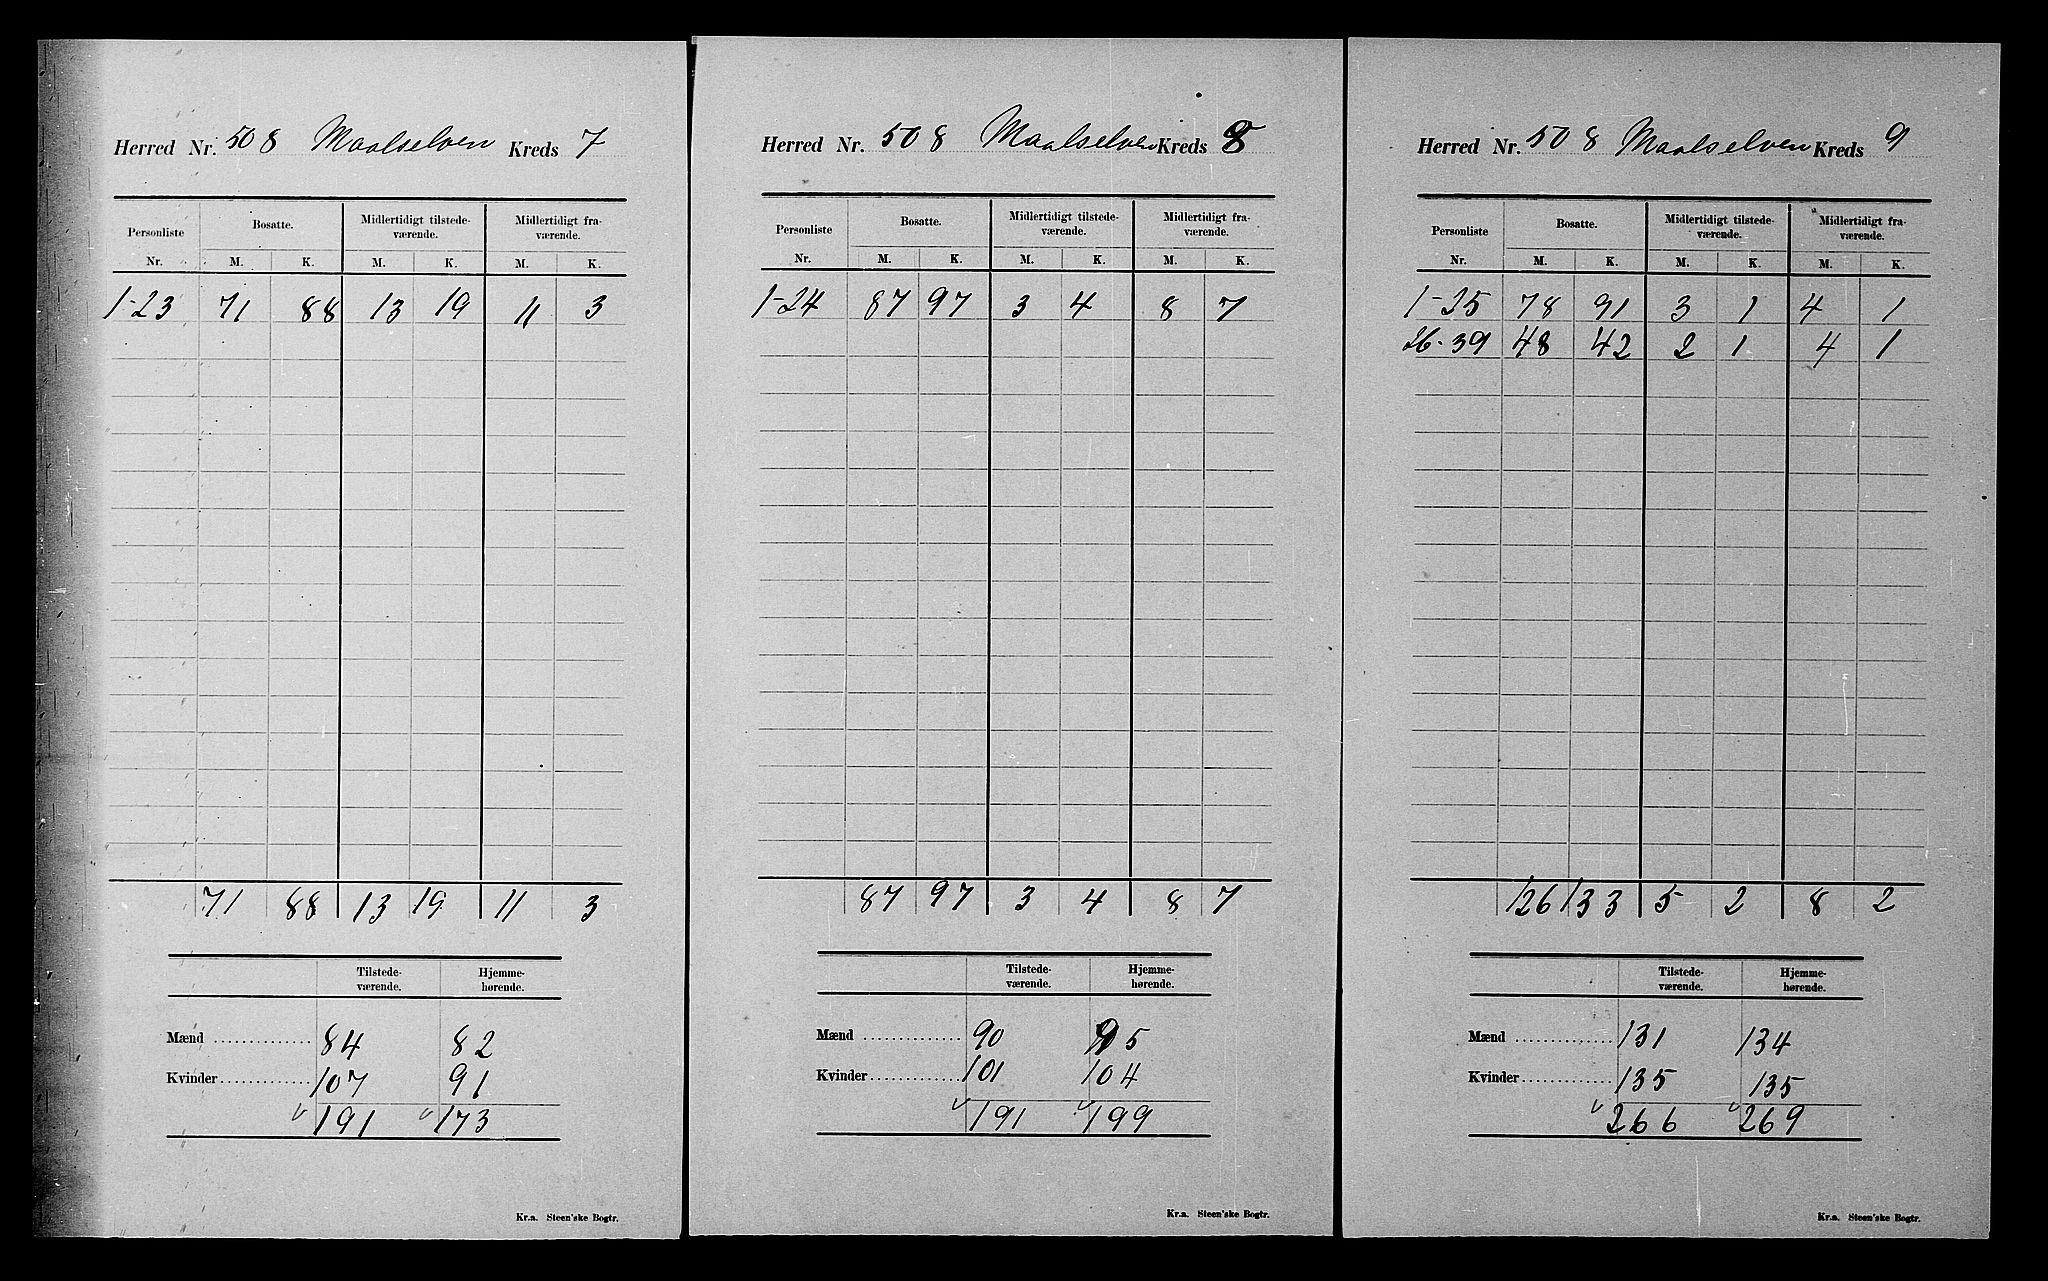 Herred Nr. 508 Maalselven Kreds 7
Personliste Bosatte. Midlertidigt tilstede-værende. Midlertidigt fra-værende.
Nr. M. K. M. K. M. K.
1-23 71 88 13 19 11 3
71 88 13 19 11 3
Tilstede-værende. Hjemme-hørende.
Mænd 84 82
Kvinder 107 91
191 173
Kr.a. Steen'ske Bogtr.
Herred Nr. 508 Maalselven Kreds 8
Personliste Bosatte. Midlertidigt tilstede-værende. Midlertidigt fra-værende.
Nr. M. K. M. K. M. K.
1-24 87 97 3 4 8 7
87 97 3 4 8 7
Tilstede-værende. Hjemme-hørende.
Mænd 90 95
Kvinder 101 104
191 199
Kr.a. Steen'ske Bogtr.
Herred Nr. 508 Maalselven Kreds 9
Personliste Bosatte. Midlertidigt tilstede-værende. Midlertidigt fra-værende.
Nr. M. K. M. K. M. K.
1-25 78 91 3 1 4 1
26-39 48 42 2 1 4 1
126 133 5 2 8 2
Tilstede-værende. Hjemme-hørende.
Mænd 131 134
Kvinder 135 135
266 269
Kr.a. Steen'ske Bogtr.